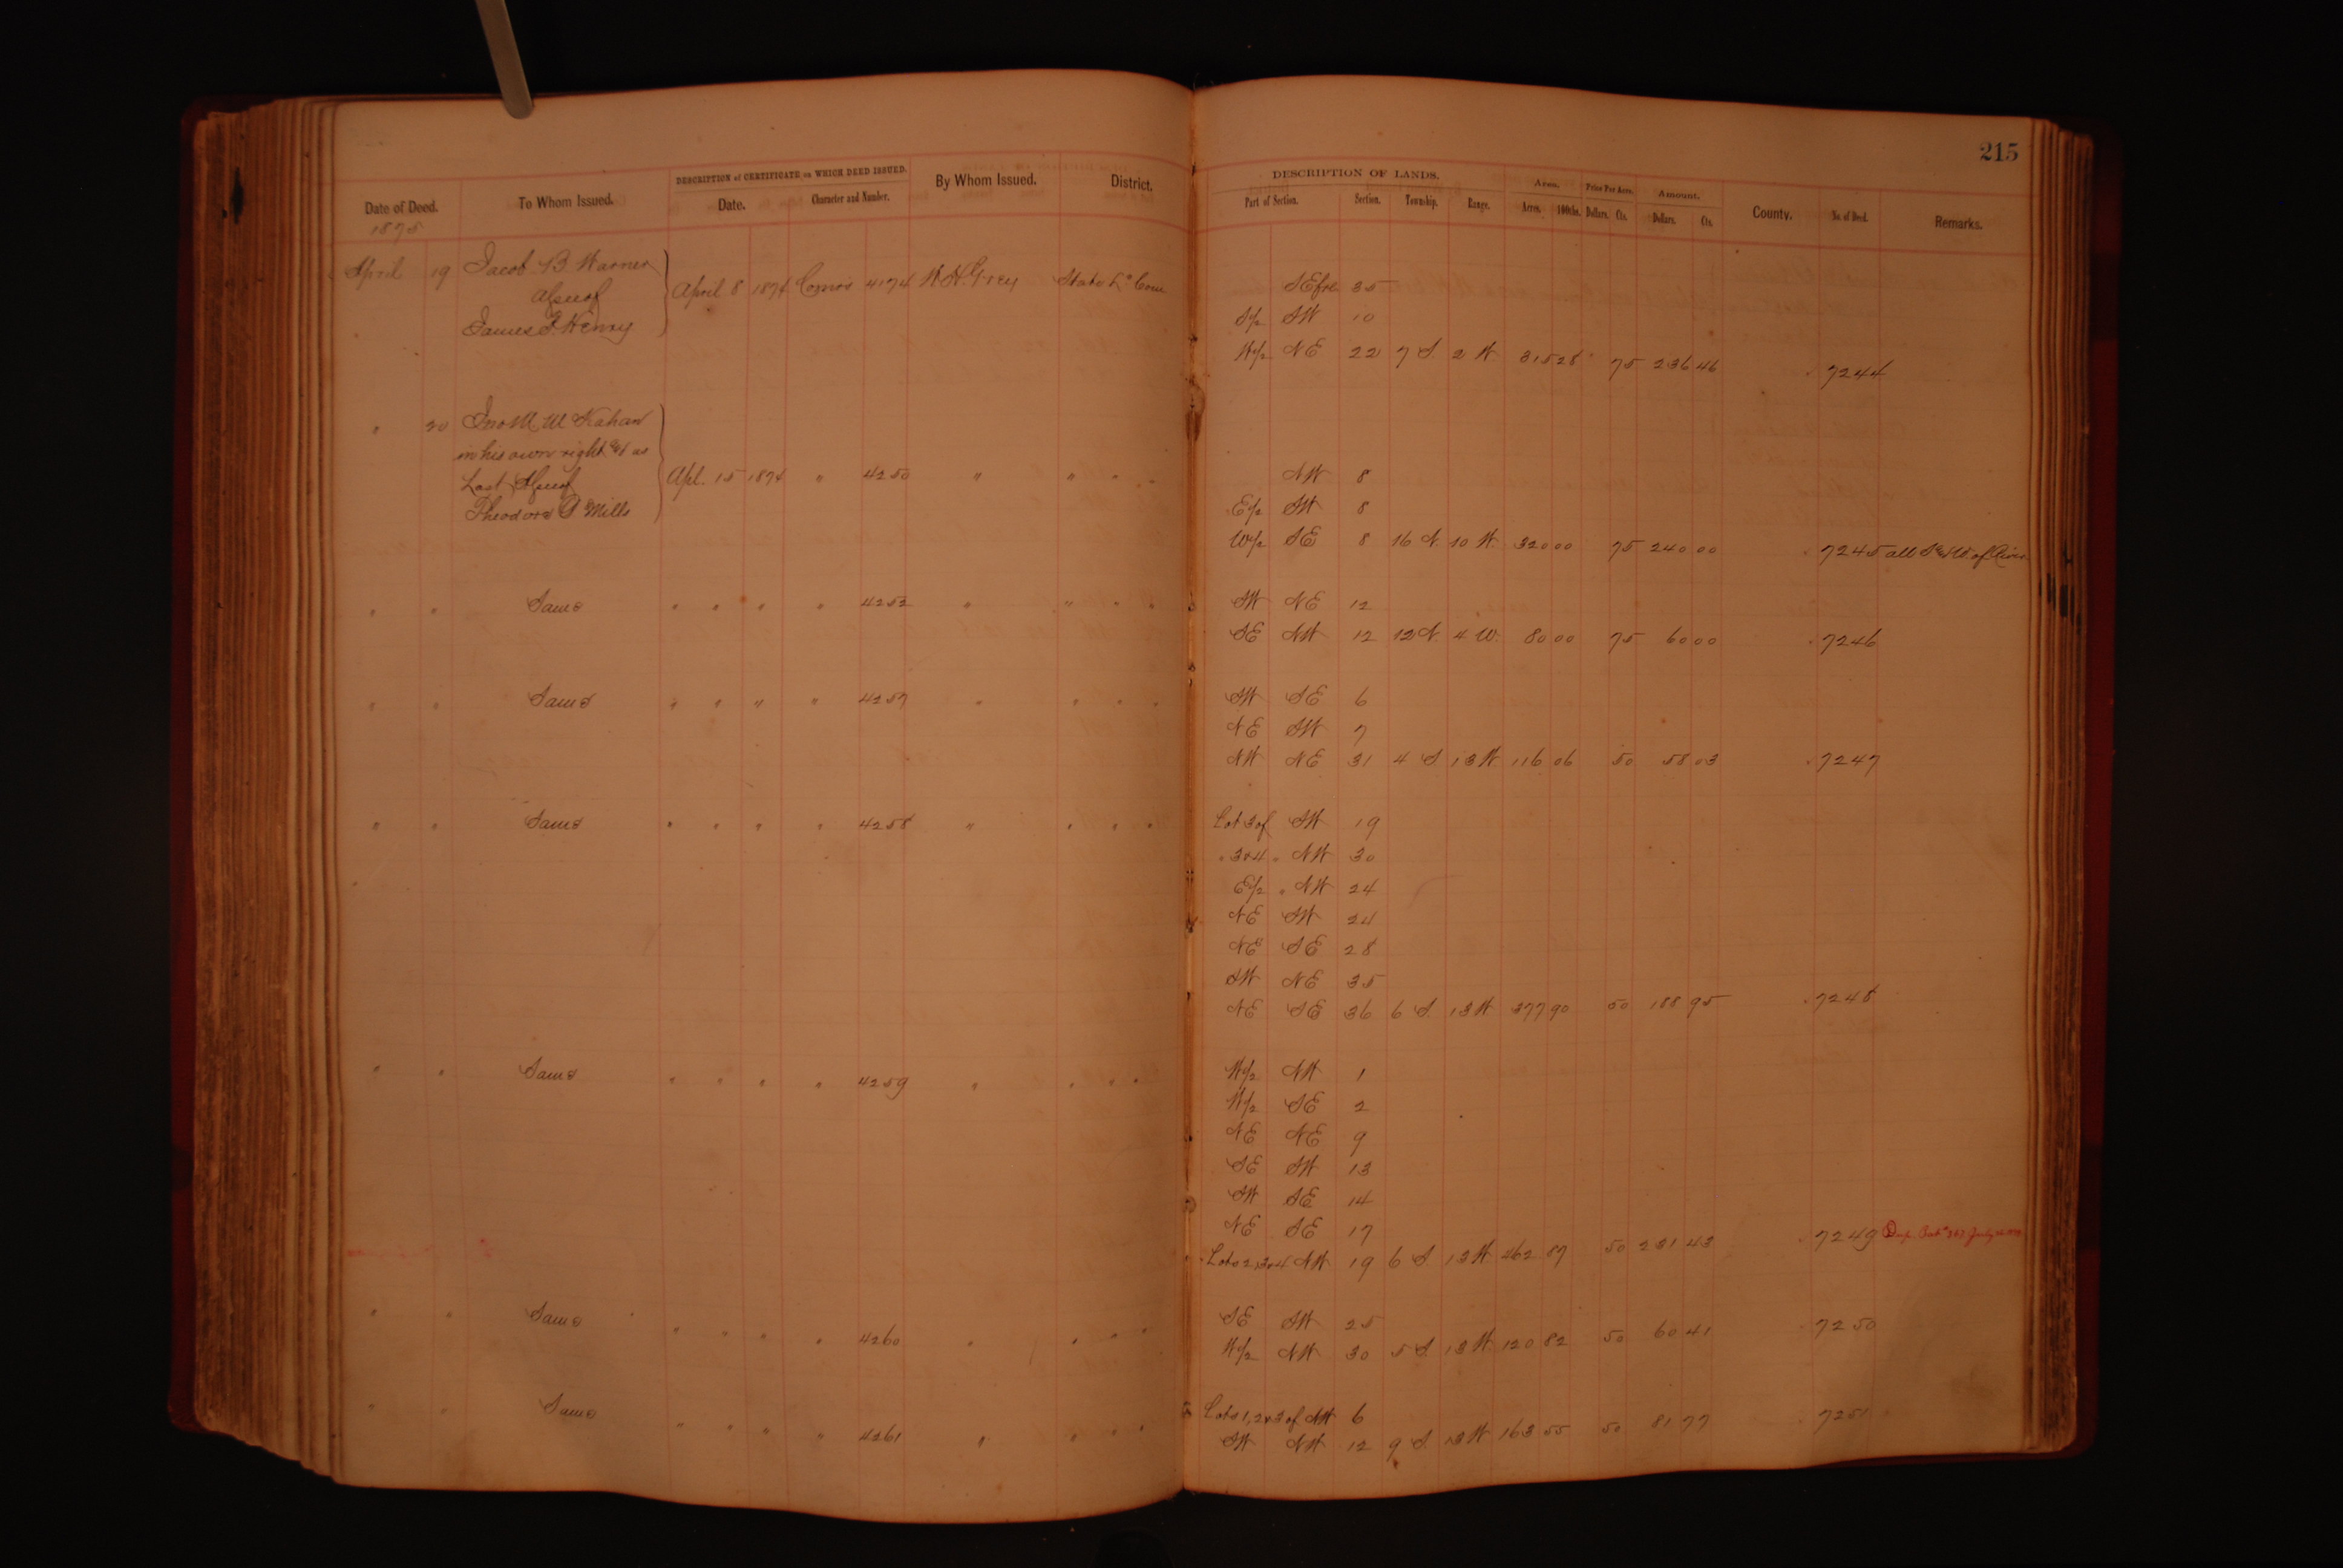 215
DESCRIPTION of CERTIFICATE on WHICH DEED ISSUED. By Whom Issued. District. DESCRIPTION OF LANDS. Area. Price Per Acre. Amount.
Date of Deed. To Whom Issued. Date. Character and Number. Part of Section. Section. Township. Range. Acres. 100ths. Dollars. Cts. Dollars. Cts. County. No. of Deed. Remarks.
1875
April 19 Jacob B Warner
James F. Henry
April 8 1874 4174 W.H. Grey State
SE 35
S/2 SW 10
W/2 NE 22 7 S. 2 W 315 28 75 236 46 7244
" 20 Jno M
in his own right & as
Last
Theodore Mills
Apl. 15 1874 " 4250 " " " " NW 8
E/2 SW 8
W/2 SE 8 16 N. 10 W. 320 00 75 240 00 7245 all S & W of River
" " Same " " " " 4252 " " " " SW NE 12
SE NW 12 12 N. 4 W. 80 00 75 60 00 7246
" " Same " " " " 4257 " " " " SW SE 6
NE SW 7
NW NE 31 4 S. 13 W 116 06 50 58 03 7247
" " Same " " " " 4258 " " " " Lot 3 of SW 19
" 3 & 4 " NW 30
E/2 " NW 24
NE SW 24
NE SE 28
SW NE 35
NE SE 36 6 S. 13 W 377 90 50 188 95 7248
" " Same " " " " 4259 " " " " W/2 NW 1
W/2 SE 2
NE NE 9
SE SW 13
SW SE 14
NE SE 17
Lots 2, 3 & 4 NW 19 6 S. 13 W. 462 87 50 231 43 7249
" " Same " " " " 4260 " " " " SE SW 25
W/2 NW 30 5 S. 13 W. 120 82 50 60 41 7250
" " Same " " " " 4261 " " " " Lots 1, 2 & 3 of NW 6
SW NW 12 9 S. 13 W 163 55 50 81 77 7251